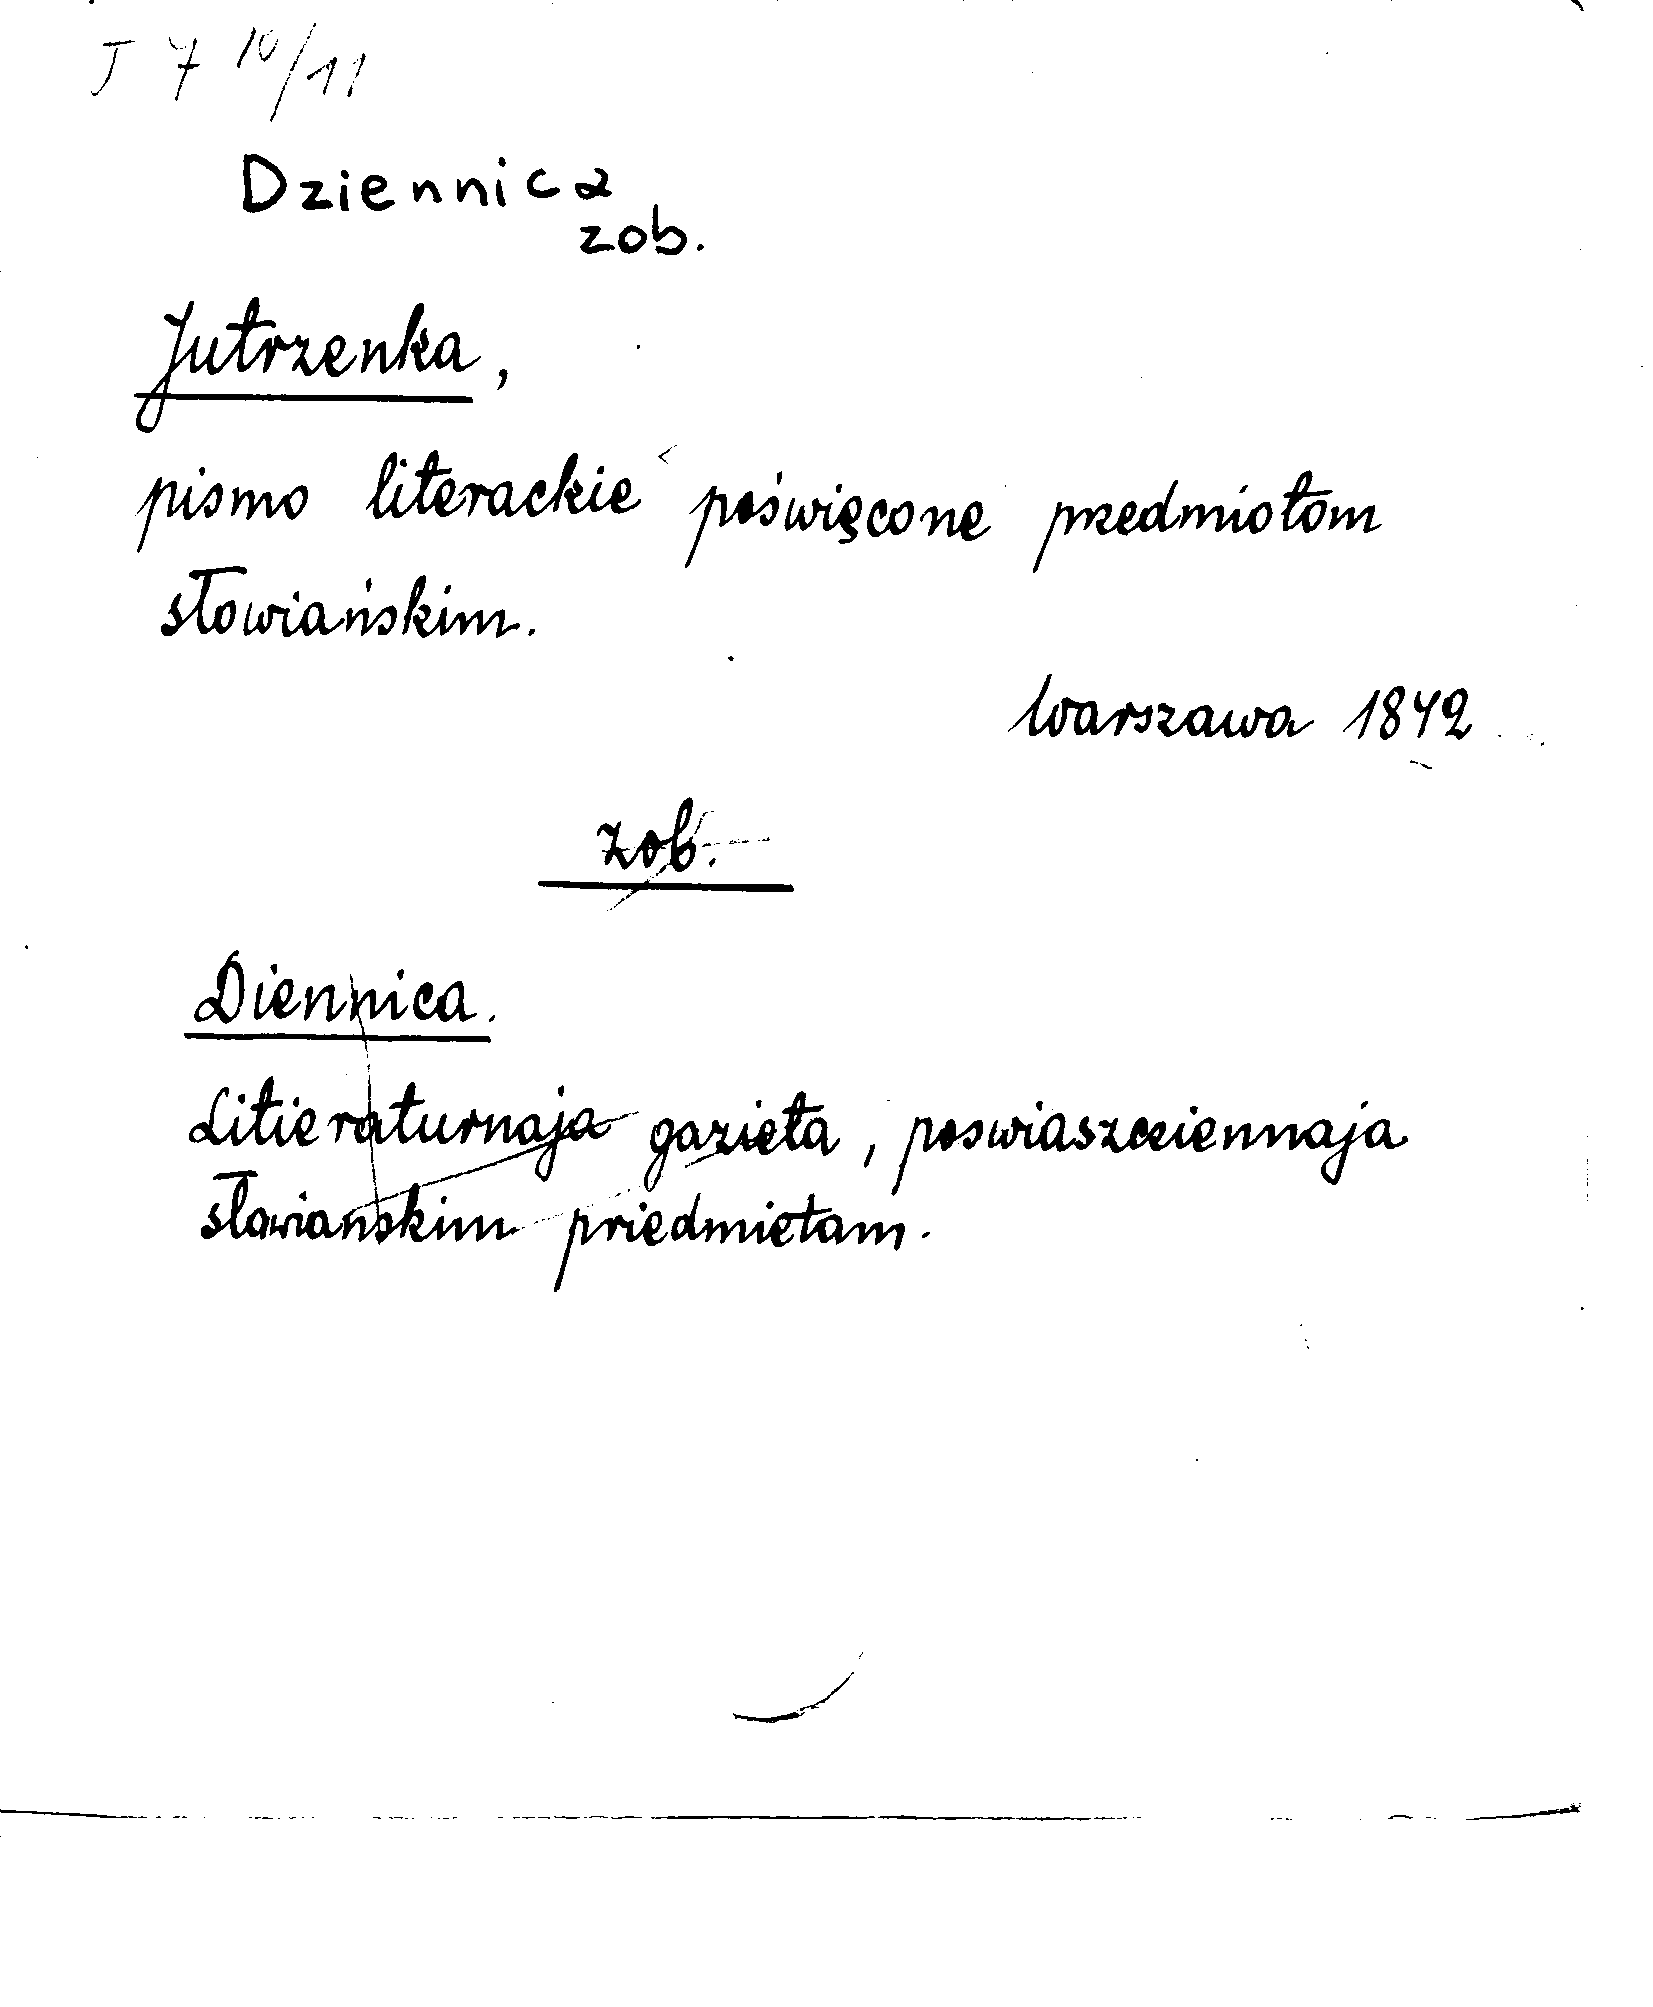 J 7 10/11
Dziennica
zob.
Jutrzenka,
pismo literackie poświęcone przedmiotom
słowiańskim.
Warszawa 1842
zob.
Diennica.
Litieraturnaja gazieta, poswiaszcziennaja
sławianskim priedmietam.